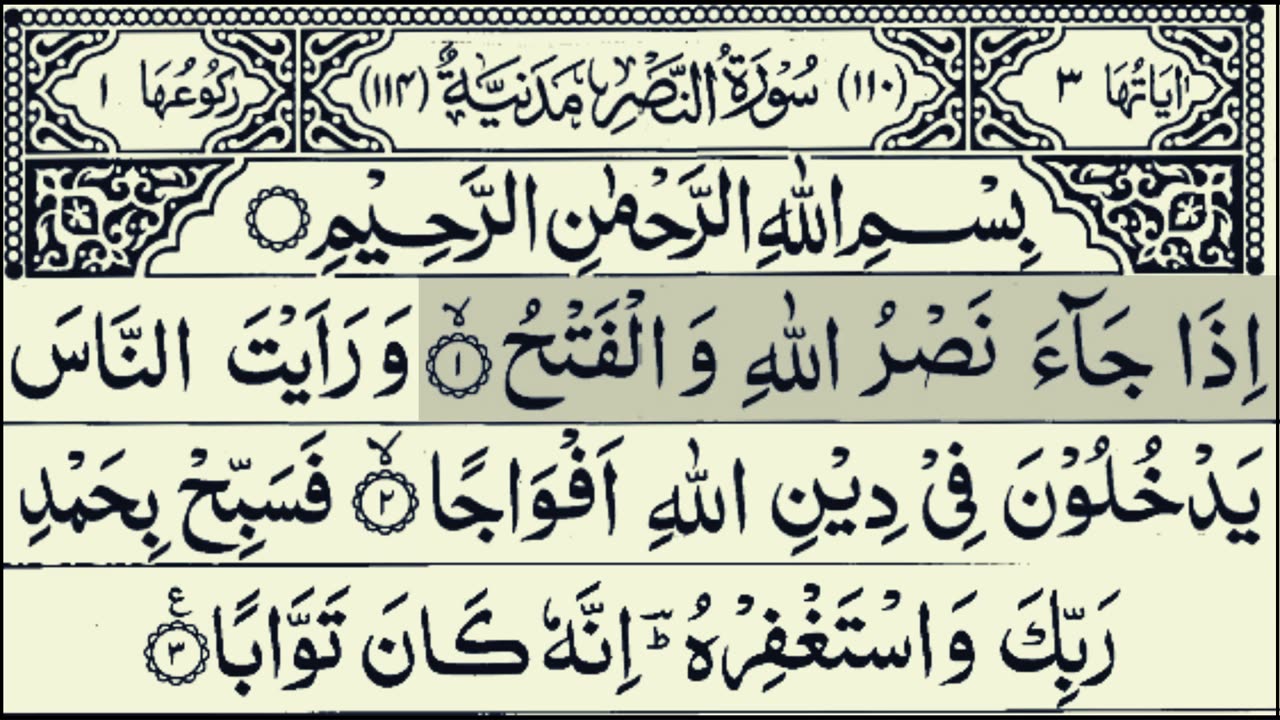 اٰيَاتُهَا ٣ (١١٠) سُوْرَةُ النَّصْرِ مَدَنِيَّةٌ (١١٤) رُكُوْعُهَا ١
بِسْمِ اللّٰهِ الرَّحْمٰنِ الرَّحِيْمِ ۝
اِذَا جَآءَ نَصْرُ اللّٰهِ وَالْفَتْحُ ۙ‏﴿١﴾ وَرَاَيْتَ النَّاسَ
يَدْخُلُوْنَ فِيْ دِيْنِ اللّٰهِ اَفْوَاجًا ۙ‏﴿٢﴾ فَسَبِّحْ بِحَمْدِ
رَبِّكَ وَاسْتَغْفِرْهُ ؕ اِنَّهٗ كَانَ تَوَّابًا ﴿٣﴾ ع